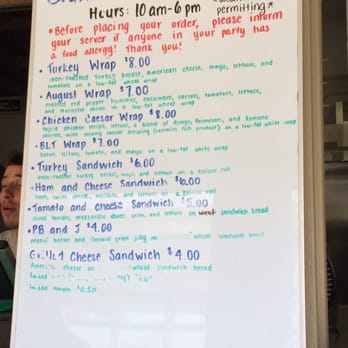 permitting*
Hours: 10am-6pm
*Before placing your order, please inform
your server if anyone in your party has
a food allergy! Thank you!
• Turkey Wrap $8.00
oven-roasted turkey breast, American cheese, mayo, lettuce, and
tomatoes on a low-fat wheat wrap
• August Wrap $7.00
roasted red pepper hummus, cucumber, carrots, tomatoes, lettuce,
and cheese in a low-fat wheat wrap
• Chicken Caesar Wrap $8.00
fajita chicken strips, lettuce, a blend of Asiago, Parmesan, and Romano
cheeses, with creamy caesar dressing (contains fish product) on a low-fat wrap
• BLT Wrap $7.00
bacon, lettuce, tomato, and mayo on a low-fat white wrap
• Turkey Sandwich $6.00
oven-roasted turkey breast, mayo, and lettuce on a Kaiser roll
• Ham and Cheese Sandwich $6.00
ham, Swiss cheese, mustard, and lettuce on a Kaiser roll
• Tomato and Cheese Sandwich $5.00
sliced tomato, mozzarella cheese, pesto, and lettuce on wheat sandwich bread
• PB and J $4.00
peanut butter and Concord grape jelly on wheat sandwich bread
Grilled Cheese Sandwich $4.00
American cheese on wheat sandwich bread
↳ add
↳ add tomato $0.50